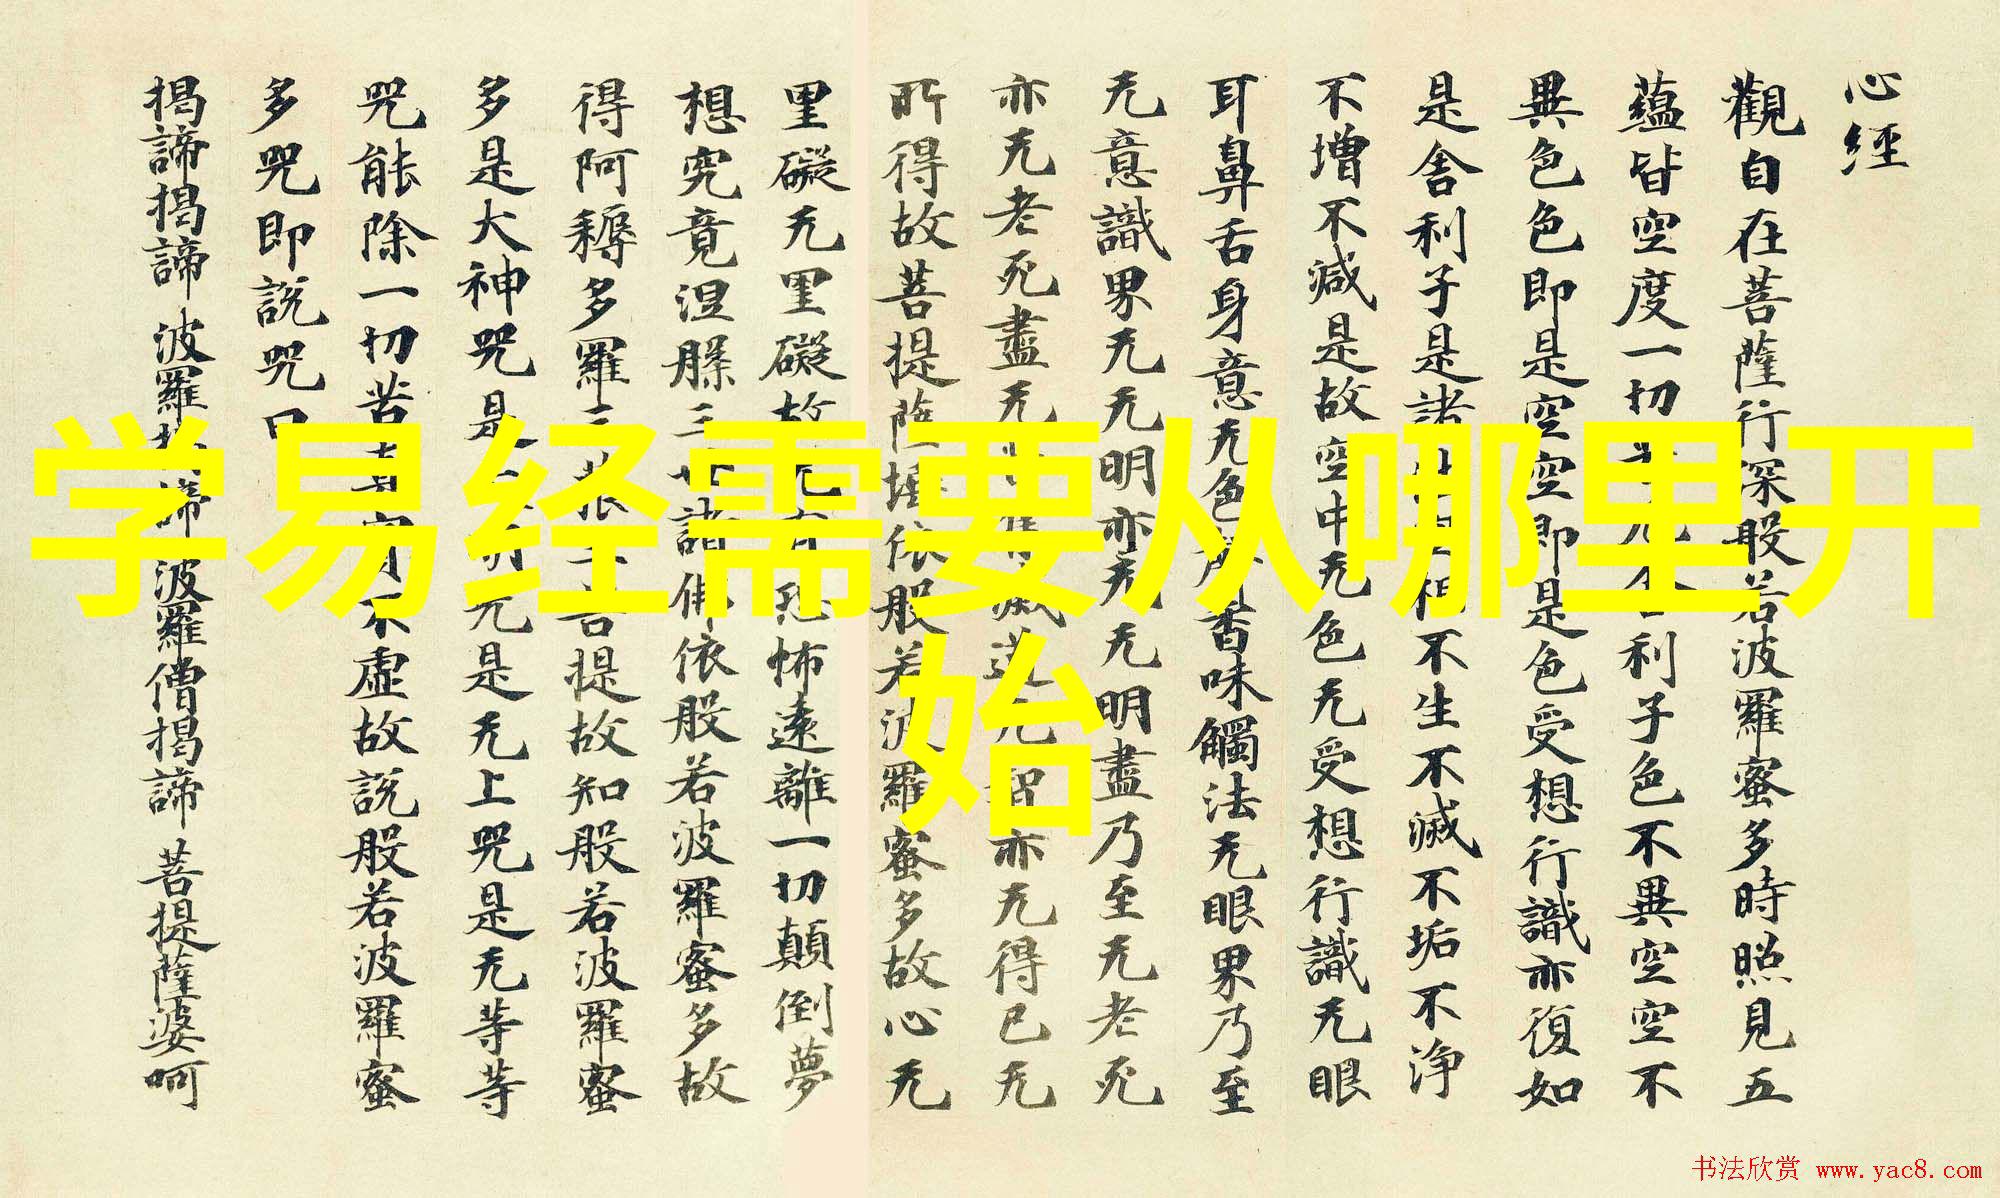 心經
觀自在菩薩行深般若波羅蜜多時照見五
蘊皆空度一切苦厄舍利子色不異空空不
異色色即是空空即是色受想行識亦復如
是舍利子是諸法空相不生不滅不垢不浄
不增不減是故空中无色无受想行識无眼
耳鼻舌身意无色聲香味觸法无眼界乃至
无意識界无无明亦无无明盡乃至无老死
亦无老死盡无苦集滅道无智亦无得已无
所得故菩提薩埵依般若波羅蜜多故心无
罣礙无罣礙故无有恐怖遠離一切顛倒夢
想究竟涅槃三世諸佛依般若波羅蜜多故
得阿耨多羅三藐三菩提故知般若波羅蜜
多是大神咒是大明咒是无上咒是无等等
咒能除一切苦真實不虛故說般若波羅蜜
多咒即說咒曰
揭諦揭諦 波羅揭諦 波羅僧揭諦 菩提薩婆呵
学易经需要从哪里开
始
书法欣赏 www.yac8.com